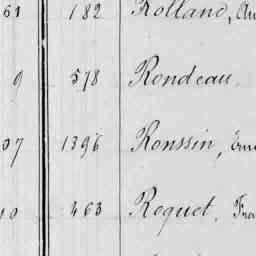 61 182 Rolland, Au
9 578 Rondeau,
07 1396 Ronssin, Ern
10 463 Roquet, Fra